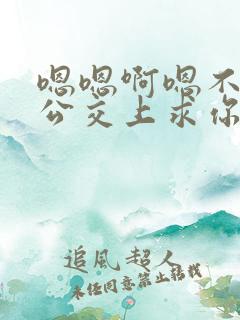 嗯嗯啊嗯不
公交上求你
追風超人
未经同意禁止转载